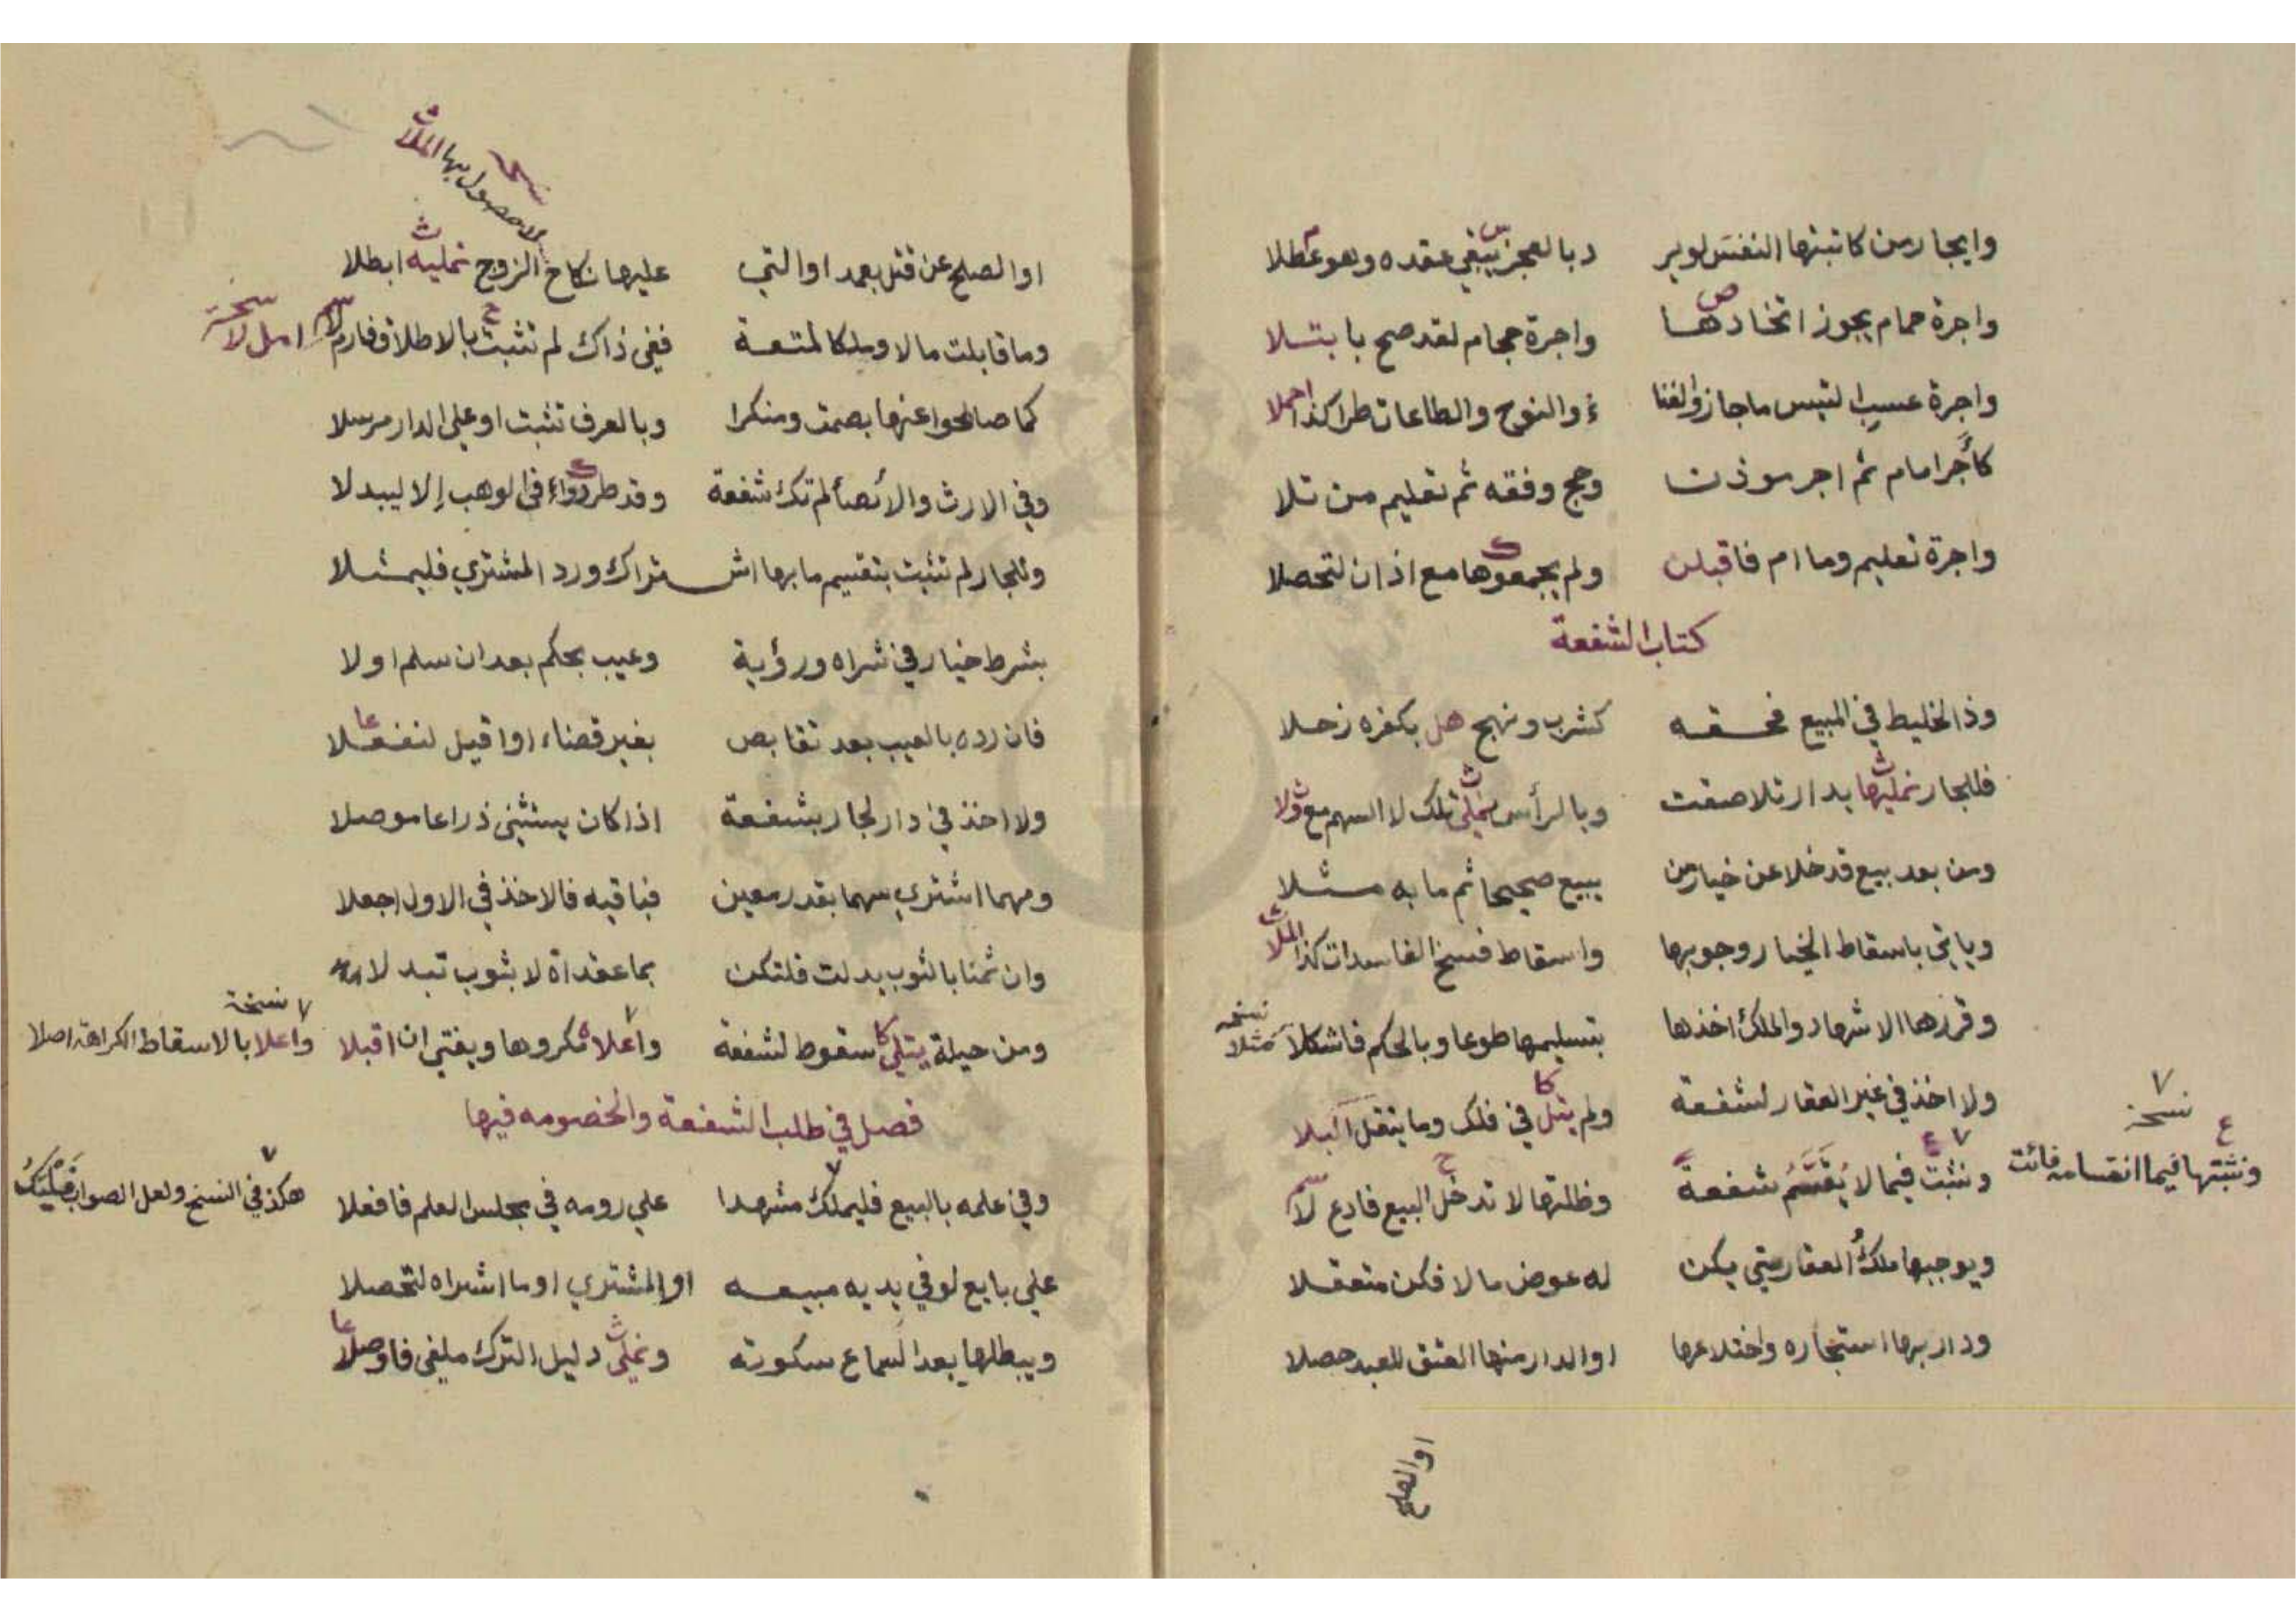 وايجار من كاتبتها النفس لو ير دبا لعجز يبقي عقده وهو عطلا
واجرة حمام يجوز اتخادها واجرة حجام لقد صح با بتلا
واجرة عسب التيس ما جاز والغنا ء والنوح والطاعات طرا كذا احملا
كأجر امام ثم اجر موذن وحج وفقه ثم تعليم من تلا
واجرة تعليم وما ام فاقبلن ولم يجمعوها مع اذان لتحصلا
كتاب الشفعة
وذا لخليط في المبيع فحقه كشرب ونهج هل بكفره زحلا
فللجار نمليها بدار تلاصقت وبا لرأس نملي تلك لا السهم مع ولا
ومن بعد بيع قد خلا عن خيار من يبيع صحيحا ثم ما به مثلا
وياتي باسقاط الخيار وجوبها واسقاط فسخ الفاسدات كذا الملا
وقررها الاشهاد والملك اخذها بتسليمها طوعا وبالحكم فاشكلا
نسخه مثلا
ولا اخذ في غير العقار لشفعة ولم يتل في فلك وما ينقل البلا
ونثبت فيما لا يقسم شفعة وظلتها لا تدخل البيع فادع لا
نسخة
ونثبتها فيما انقسامه فائت
ويوجبها ملك العقار متي يكن له عوض مالا فكن متعقلا
ودار بها استئجاره واختلاعها اوالدار منها العتق للعبد حصلا
اوالصلح
نسخه
لا حصول بها الملا
اوالصلح عن قتل بعمد اوالتي عليها نكاح الزوج نمليه ابطلا
وما قابلت مالا وملكا لمتعة ففي ذاك لم تثبت بالاطلاق فارم لا
امل لا نسخة
كما صالحوا عنها بصمت ومنكرا وبالعرف تثبت اوعلي الدار مرسلا
وفي الارث والائصأ لم تك شفعة وقد طردواء في الوهب إلا ليبدلا
وللجار لم تثبت بتقسيم ما بها اشتراك ورد المشتري فليمثلا
بشرط خيار في شراه ورؤية وعيب بحكم بعد ان سلم اولا
فان رده بالعيب بعد تقابض بغير قضاء اوا قيل لتفعلا
ولا اخذ في دار لجار بشفعة اذا كان يستثني ذراعا موصلا
ومهما اشتري سهما بقدر معين فباقيه فالاخذ في الاول اجعلا
وان ثمنا بالثوب بدلت فلتكن بما عقداة لا بثوب تبدلا
ومن حيلة يتلي سقوط لشفعة واعلاه مكروها ويفتي ان اقبلا
نسخة
واعلا بالاسقاط الكراهة اصلا
فصل في طلب الشفعة والخصومه فيها
وفي علمه بالبيع فليملك مشهدا علي رومه في مجلس العلم فافعلا
هكذا في النسخ ولعل الصواب فليك
علي بايع لو في يديه مبيعه اوالمشتري اوما اشراه لتحصلا
ويبطلها بعد السماع سكوته ونملي دليل الترك ملغي فاوصلا